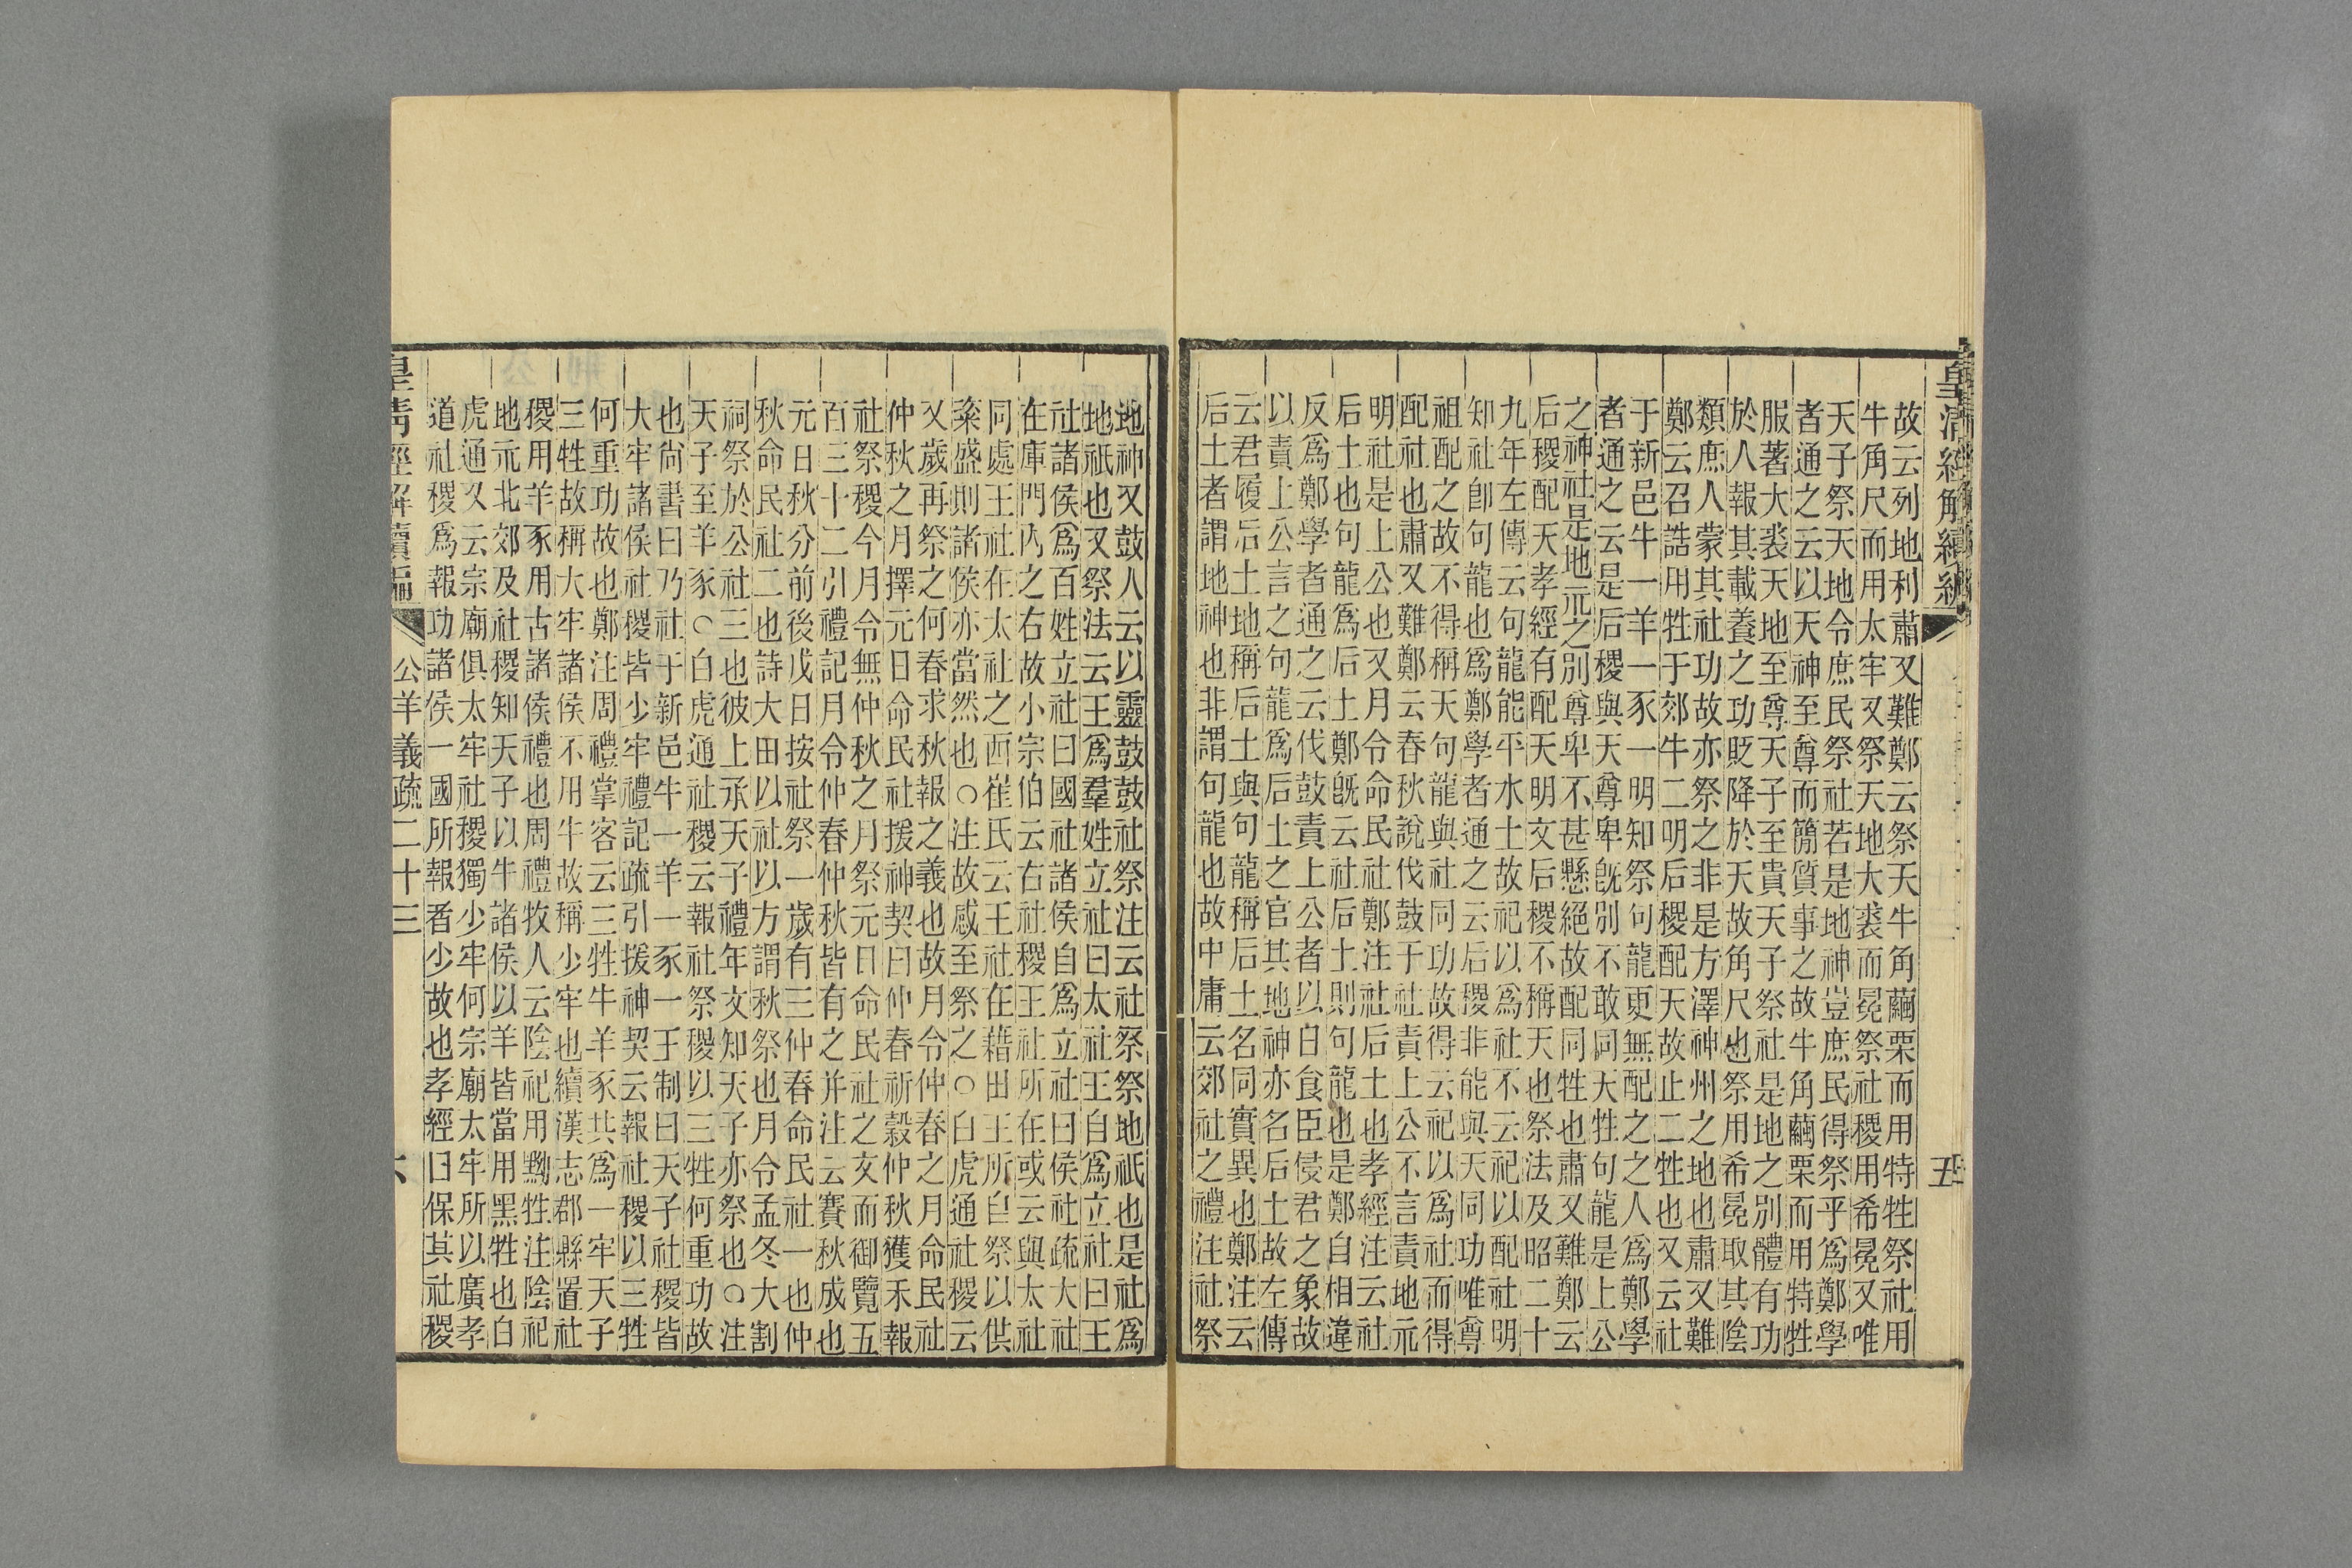 皇清經解續編
五
故云列地利肅又難鄭云祭天牛角繭栗而用特牲祭社用
牛角尺而用太牢又祭天地大裘而冕祭社稷用希冕又唯
天子祭天地令庶民祭社若是地神豈庶民得祭乎爲鄭學
者通之云以天神至尊而簡質事之故牛角繭栗而用特牲
服著大裘天地至尊天子至貴天子祭社是地之別體有功
於人報其載養之功貶降於天故角尺也祭用希冕取其陰
類庶人蒙其社功故亦祭之非是方澤神州之地也肅又難
鄭云召誥用牲于郊牛二明后稷配天故止二牲也又云社
于新邑牛一羊一豕一明知祭句龍更無配之之人爲鄭學
者通之云是后稷與天尊卑旣別不敢同天牲句龍是上公
之神社是地元之別尊卑不甚懸絕故配同牲也肅又難鄭云
后稷配天孝經有配天明文后稷不稱天也祭法及昭二十
九年左傳云句龍能平水土故祀以爲社不云祀以配社明
知社卽句龍也爲鄭學者通之云后稷非能與天同功唯尊
祖配之故不得稱天句龍與社同功故得云祀以爲社而得
配社也肅又難鄭云春秋說伐鼓于社責上公不言責地元
明社是上公也又月令命民社鄭注社后土也孝經注云社
后土也句龍爲后土鄭旣云社后土則句龍也是鄭自相違
反爲鄭學者通之云伐鼓責上公者以日食臣侵君之象故
以責上公言之句龍爲后土之官其地神亦名后土故左傳
云君履后土地稱后土與句龍稱后土名同實異也鄭注云
后土者謂地神也非謂句龍也故中庸云郊社之禮注社祭
地神又鼓人云以靈鼓鼓社祭注云社祭祭地祇也是社爲
地祇也又祭法云王爲羣姓立社曰太社王自爲立社曰王
社諸侯爲百姓立社曰國社諸侯自爲立社曰侯社疏大社
在庫門內之右故小宗伯云右社稷王社所在或云與太社
同處王社在太社之西崔氏云王社在藉田王所自祭以供
粢盛則諸侯亦當然也○注故感至祭之○白虎通社稷云
又歲再祭之何春求秋報之義也故月令仲春之月命民社
仲秋之月擇元日命民社援神契曰仲春祈穀仲秋獲禾報
社祭稷今月令無仲秋之月祭元日命民社之文而御覽五
百三十二引禮記月令仲春仲秋皆有之并注云賽秋成也
元日秋分前後戊日按社祭一歲有三仲春命民社一也仲
秋命民社二也詩大田以社以方謂秋祭也月令孟冬大割
祠祭於公社三也彼上承天子禮年文知天子亦祭也○注
天子至羊豕○白虎通社稷云報社祭稷以三牲何重功故
也尙書曰乃社于新邑牛一羊一豕一王制曰天子社稷皆
大牢諸侯社稷皆少牢禮記疏引援神契云報社稷以三牲
何重功故也鄭注周禮掌客云三牲牛羊豕共爲一牢天子
三牲故稱大牢諸侯不用牛故稱少牢也續漢志郡縣置社
稷用羊豕用古諸侯禮也周禮牧人云陰祀用黝牲注陰祀
地元北郊及社稷知天子以牛諸侯以羊皆當用黑牲也白
虎通又云宗廟俱太牢社稷獨少牢何宗廟太牢所以廣孝
道社稷爲報功諸侯一國所報者少故也孝經曰保其社稷
皇清經解續編
公羊義疏二十三
六